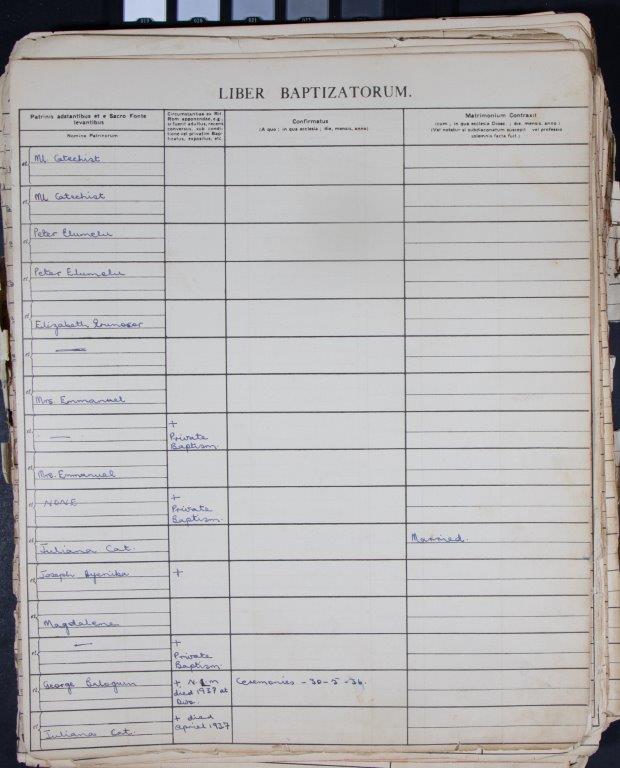 019 020 021
LIBER BAPTIZATORUM.
Patrinis adstantibus et e Sacro Fonte
levantibus
Nomina Patrinorum
Circumstantiae ex Rit.
Rom. apponendae, e.g.,
si fuerit adultus, recens
conversus, sub condi-
tione vel privatim Bap-
tizatus, expositus, etc.
Confirmatus
(A quo ; in qua ecclesia ; die, mensis, anno)
Matrimonium Contraxit
(cum ; in qua ecclesia Dioec. ; die, mensis, anno.)
(Vel notetur si subdiaconatum suscepit vel professio
solemnis facta fuit.)
Ml. Catechist
Ml Catechist
Peter Elumelu
Peter Elumelu
Elizabeth
—
Mrs. Emmanuel
—
+
Private
Baptism.
Mrs. Emmanuel
NONE
+
Private
Baptism.
Juliana Cat.
Married.
Joseph
+
Magdalene
—
+
Private
Baptism.
George Balogun
+
died 1937 at
Ceremonies - 30-5-36.
Juliana Cat.
+ died
April 1937